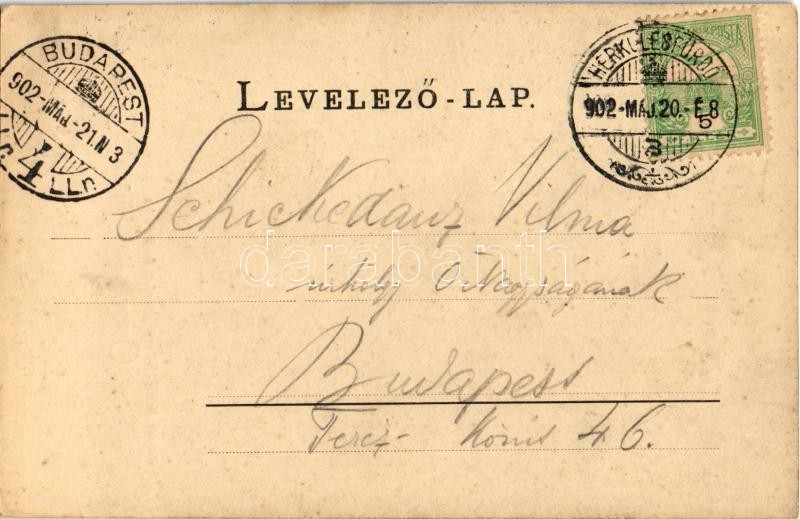 BUDAPEST
902-MÁJ.-21.N 3
4
HERKULESFÜRDŐ
902-MÁJ.20.-É8
LEVELEZŐ-LAP.
5
Schickedanz Vilma
darabanth
Ő Nagyságának
Budapest
Teréz- körút 46.